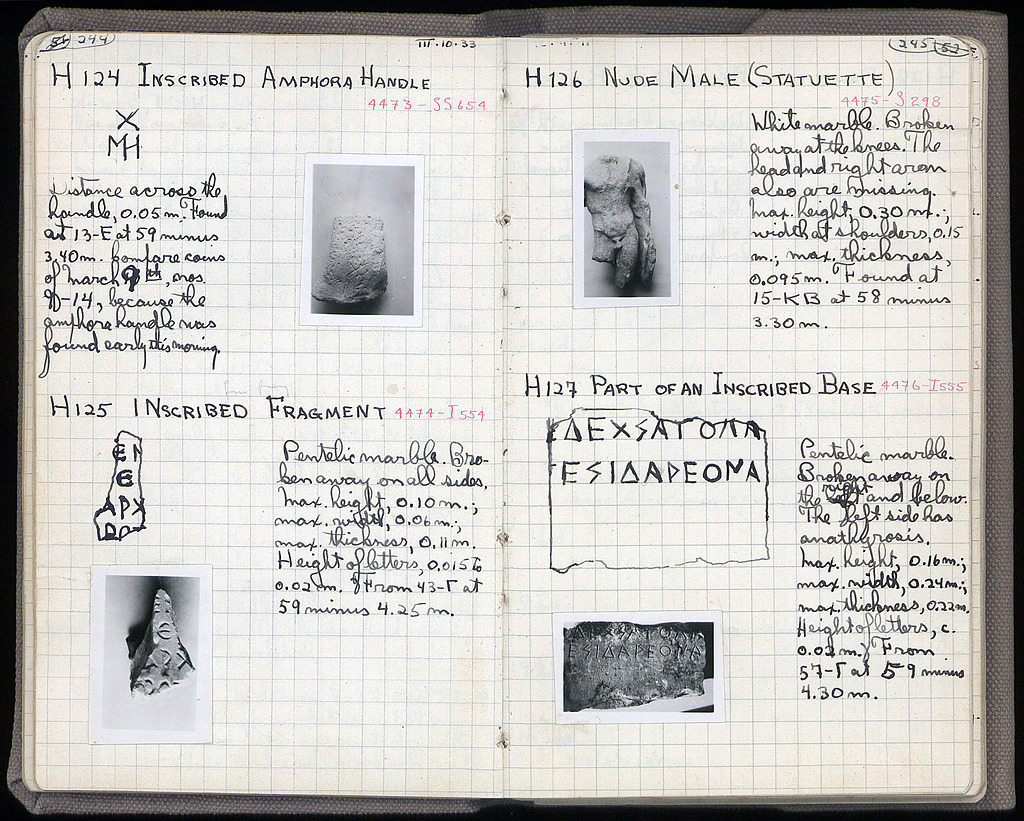 244
III·10·33
H 124 INSCRIBED AMPHORA HANDLE
4473-SS654
X
MH
Distance across the
handle, 0.05 m. Found
at 13-E at 59 minus
3.40m. Compare coins
of March 9th, nos.
9-14, because the
amphora handle was
found early this morning.
H125 INSCRIBED FRAGMENT 4474-I554
ЄΝ
Є
ΑΡΧ
Pentelic marble. Bro-
ken away on all sides.
Max. height, 0.10 m.;
max. width, 0.06 m.;
max. thickness, 0.11 m.
Height of letters, 0.015 to
0.02 m. From 43-Γ at
59 minus 4.25 m.
245 52
H126 NUDE MALE (STATUETTE)
4475-S 298
White marble. Broken
away at the knees. The
head and right arm
also are missing.
Max. height, 0.30 m.;
width at shoulders, 0.15
m.; max. thickness,
0.095 m. Found at
15-KB at 58 minus
3.30 m.
H127 PART OF AN INSCRIBED BASE 4476-I555
ΔΕΧSΑΤΟΛΛ
ΕSΙΔΑΡΕΟΜΑ
Pentelic marble.
Broken away on
the right and below.
The left side has
anathyrosis.
Max. height, 0.16 m.;
max. width, 0.24 m.;
max. thickness, 0.22 m.
Height of letters, c.
0.02 m. From
57-Γ at 59 minus
4.30 m.